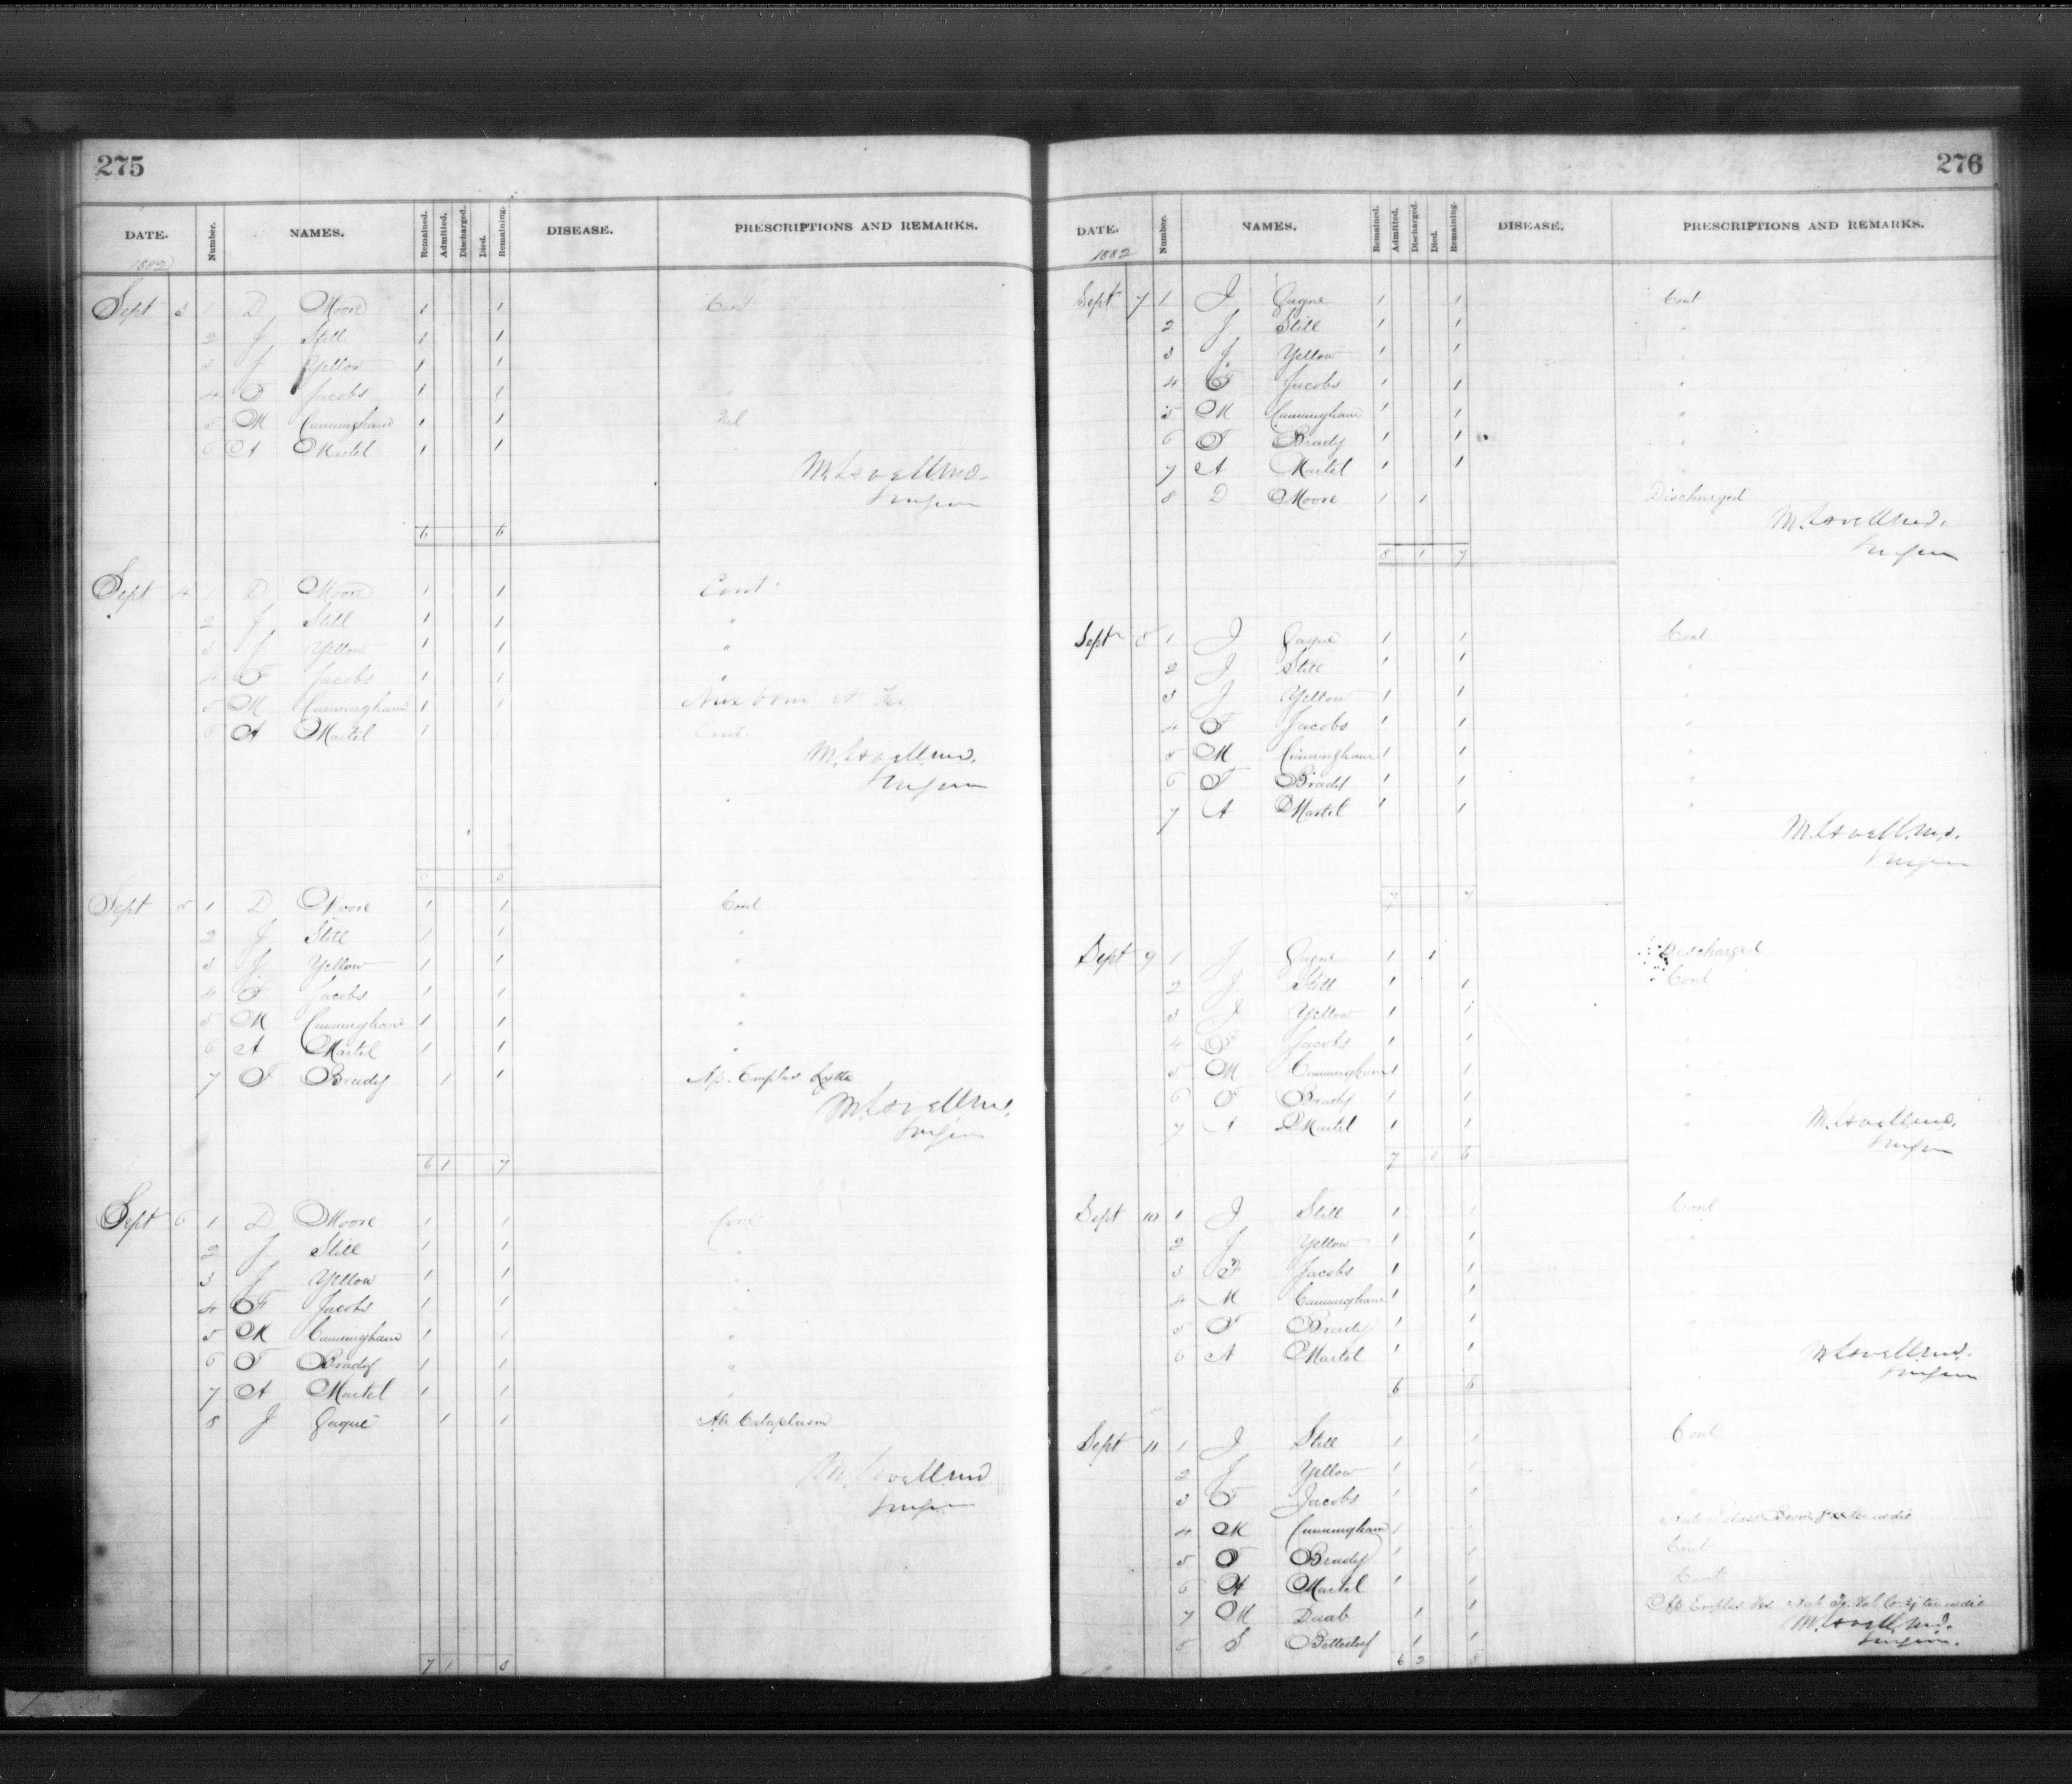 275
DATE. Number. NAMES. Remained. Admitted. Discharged. Died. Remaining. DISEASE. PRESCRIPTIONS AND REMARKS.
1882
Sept 3 1 D Moore 1 1 Cont
2 J Still 1 1
3 J Yellow 1 1
4 F Jacobs 1 1 "
5 M Cunningham 1 1
6 A Martel 1 1
M. Lovell M.D.
Surgeon
6 6
Sept 4 1 D Moore 1 1 Cont
2 J Still 1 1 "
3 J Yellow 1 1 "
4 F Jacobs 1 1 "
5 M Cunningham 1 1
6 A Martel 1 Cont.
M. Lovell M.D.
Surgeon
6 6
Sept 5 1 D Moore 1 1 Cont
2 J Still 1 1 "
3 J Yellow 1 1 "
4 F Jacobs 1 1 "
5 M Cunningham 1 1 "
6 A Martel 1 1 "
7 F Brady 1 1 Ap. Emplas Lytta
M. Lovell M.D.
Surgeon
6 1 7
Sept 6 1 D Moore 1 1 Cont
2 J Still 1 1 "
3 J Yellow 1 1 "
4 F Jacobs 1 1 "
5 M Cunningham 1 1 "
6 F Brady 1 1 "
7 A Martel 1 1 "
8 J Gagne 1 1 Ab Cataplasm
M. Lovell M.D.
Surgeon
7 1 8
276
DATE. Number. NAMES. Remained. Admitted. Discharged. Died. Remaining. DISEASE. PRESCRIPTIONS AND REMARKS.
1882
Sept 7 1 J Gagne 1 1 Cont
2 J Still 1 1 "
3 J Yellow 1 1 "
4 F Jacobs 1 1 "
5 M Cunningham 1 1 "
6 F Brady 1 1 "
7 A Martel 1 1 "
8 D Moore 1 1 Discharged
M. Lovell M.D.
Surgeon
8 1 7
Sept 8 1 J Gagne 1 1 Cont
2 J Still 1 1 "
3 J Yellow 1 1 "
4 F Jacobs 1 1 "
5 M Cunningham 1 1 "
6 F Brady 1 1 "
7 A Martel 1 1 "
M. Lovell M.D.
Surgeon
7 7
Sept 9 1 J Gagne 1 1 Discharged
2 J Still 1 1 Cont
3 J Yellow 1 1 "
4 F Jacobs 1 1 "
5 M Cunningham 1 1 "
6 F Brady 1 1 "
7 A Martel 1 1 "
M. Lovell M.D.
Surgeon
7 1 6
Sept 10 1 J Still 1 1 Cont
2 J Yellow 1 1 "
3 F Jacobs 1 1
4 M Cunningham 1 1
5 F Brady 1 1
6 A Martel 1 1
M. Lovell M.D.
Surgeon
6 6
Sept 11 1 J Still 1 1 Cont
2 J Yellow 1 1
3 F Jacobs 1 1
4 M Cunningham 1 1 ter in die
5 F Brady 1 1 Cont
6 A Martel 1 1 Cont
7 M Daab 1 1 Ap Emplas ter in die
8 S 1 1
M. Lovell M.D.
Surgeon.
6 2 8